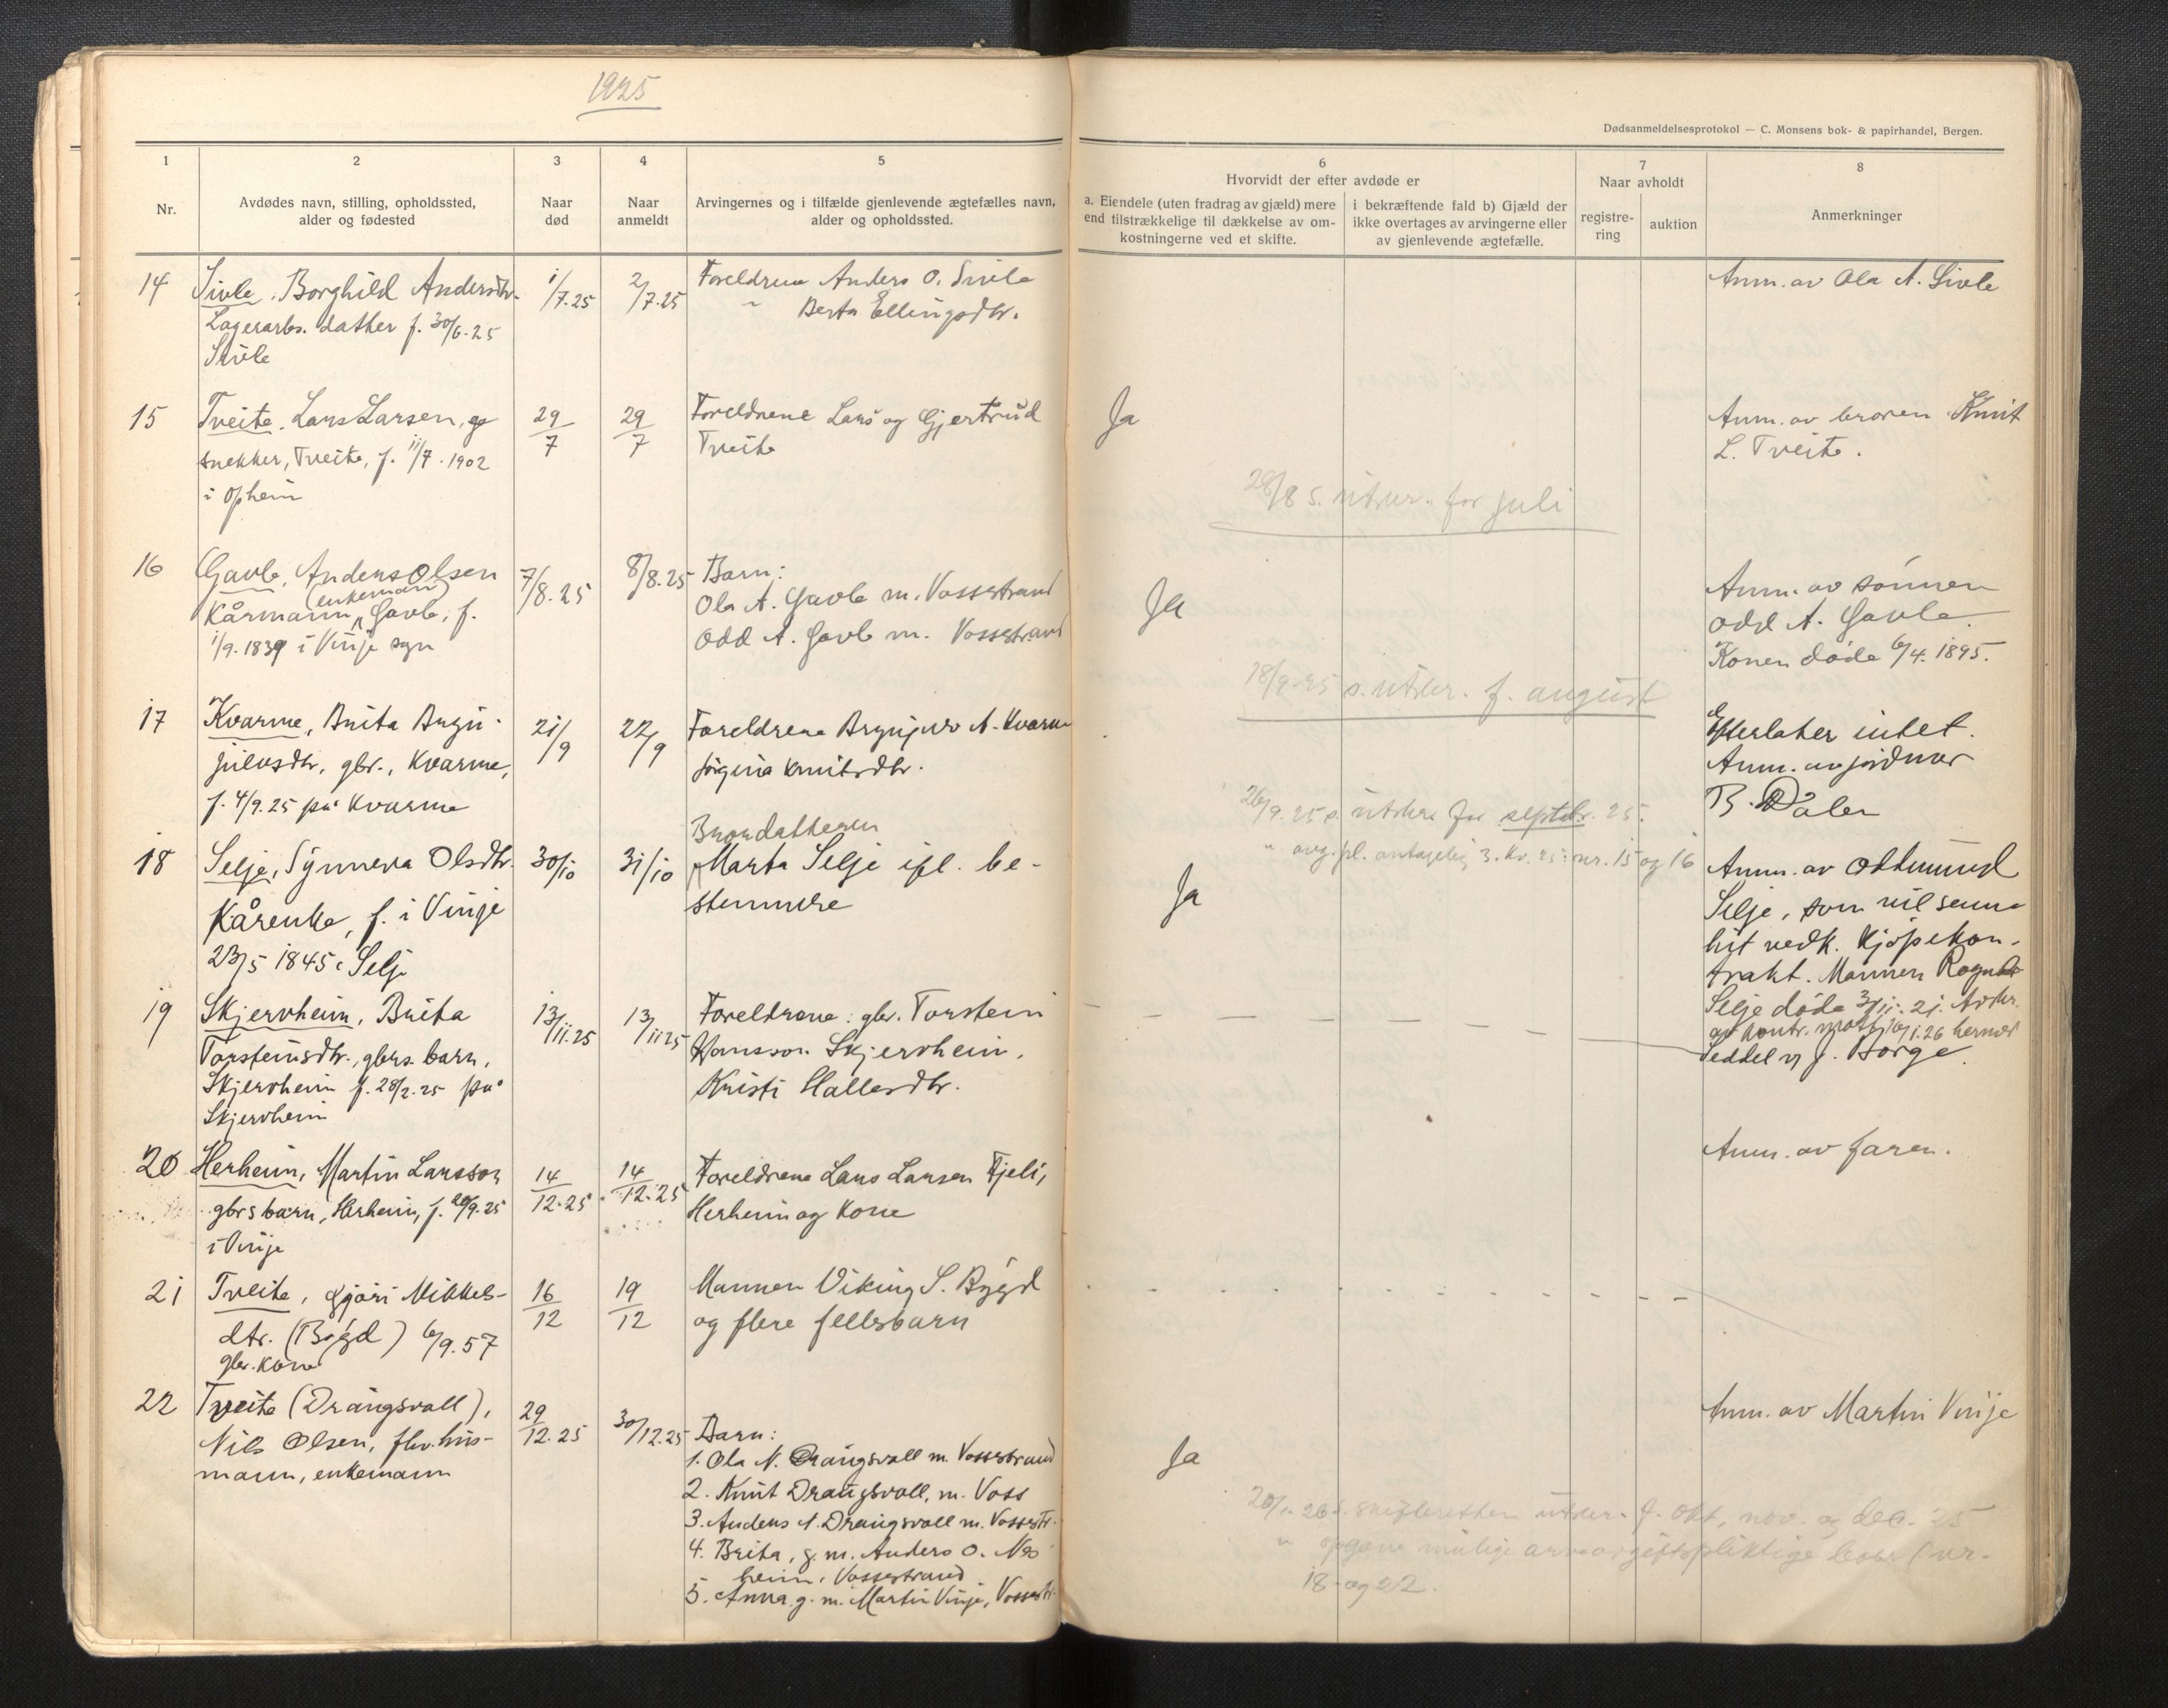 1925
Dødsanmeldelsesprotokol — C. Monsens bok- & papirhandel, Bergen.
1
2
3
4
5
6
7
8
Nr.
Avdødes navn, stilling, opholdssted,
alder og fødested
Naar
død
Naar
anmeldt
Arvingernes og i tilfælde gjenlevende ægtefælles navn,
alder og opholdssted.
Hvorvidt der efter avdøde er
a. Eiendele (uten fradrag av gjæld) mere
end tilstrækkelige til dækkelse av om-
kostningerne ved et skifte.
i bekræftende fald b) Gjæld der
ikke overtages av arvingerne eller
av gjenlevende ægtefælle.
Naar avholdt
registre-
ring
auktion
Anmerkninger
14
Sivle, Borghild Andersdtr.
Lagerarb. datter f. 30/6.25
Sivle
1/7.25
2/7.25
Foreldrene Anders O. Sivle
" Berta Ellingsdtr.
Anm. av Ola A. Sivle
15
Tveite, Lars Larsen, gs
snekker, Tveite, f. 11/7.1902
i Opheim
29/7
29/7
Foreldrene Lars og Gjertrud
Tveite
Ja
Anm. av broren Knut
L. Tveite.
28/8 s. utskr. for juli
16
Gavle, Anders Olsen
(enkemann)
Kårmann, Gavle, f.
1/9.1839 i Vinje sgn
7/8.25
8/8.25
Barn:
Ola A. Gavle m. Vossestrand
Odd A. Gavle m. Vossestrand
Ja
Anm. av sønnen
Odd A. Gavle.
Konen døde 6/4.1895.
18/9-25 s. utskr. f. august
17
Kvarme, Brita Bryn-
julvsdtr, gbr., Kvarme,
f. 4/9.25 på Kvarme
21/9
22/9
Foreldrene Brynjulv A. Kvarme
Jørgina Knutsdtr.
Efterlater intet.
Anm. av jordmor
B. Dalen
26/9.25 s. utskr. for septbr. 25.
" avg.pl. antagelig 3. kv. 25: nr. 15 og 16
18
Selje, Synneva Olsdtr.
Kårenke, f. i Vinje
23/5 1845 Selje
30/10
31/10
Brordatteren
Marta Selje ifl. be-
stemmelse
Ja
Anm. av Oddmund
Selje, som vil senne
hit vedk. kjøpekon-
trakt. Mannen Rognald
Selje døde 3/11.21. Avskr.
av kontr. mott. 16/1.26 hermed
Seddel til J. Børge.
19
Skjervheim, Brita
Torsteinsdtr., gbrs. barn,
Skjervheim f. 28/2.25 på
Skjervheim
13/11.25
13/11 25
Foreldrene: gbr. Torstein
Hansson Skjervheim,
Kristi Hallesdtr.
20
Herheim, Martin Larsson
gbrs barn, Herheim, f. 20/9.25
i Vinje
14/12.25
14/12.25
Foreldrene Lars Larsen Fjeli,
Herheim og kone
Anm. av faren.
21
Tveite, Gjøri Mikkels-
dtr. (Bygd) 6/9.57
gbr.kone
16/12
19/12
Mannen Viking S. Bygd
og flere fellesbarn
22
Tveite (Drangsvall),
Nils Olsen, fhv. hus-
mann, enkemann
29/12.25
30/12.25
Barn:
1. Ola N. Drangsvall m. Vossestrand
2. Knut Drangsvoll, m. Voss
3. Anders N. Drangsvoll m. Vossestr.
4. Brita, g. m. Anders O. Nes
heim, Vossestrand
5. Anna g. m. Martin Vinje, Vossestr.
Ja
Anm. av Martin Vinje
20/1.26 s. skifteretten utskr. f. okt, nov. og dec. 25
" opgave mulige arveavgiftspliktige boer (nr.
18 og 22.